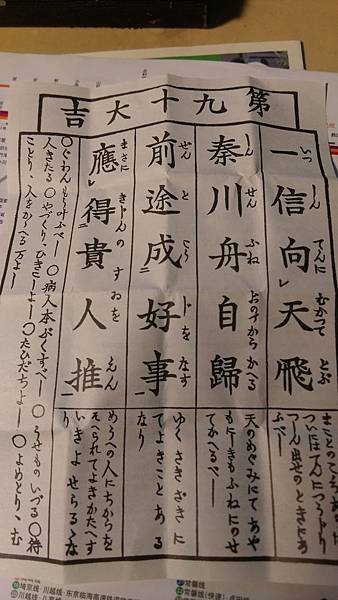 第九十大吉
一信向天飛
いつしんてんにむかつてとぶ
まことのこゝろあれば
ついにはてんにつうじり
つしん出せのときにあ
ふべし
秦川舟自歸
しんせんふねおのづからかる
天のめぐみにてあや
もにしきもふねにのせ
てかへるべし
前途成好事
ぜんとこうじをなす
ゆくさきざきに
てよきことある
なり
應得貴人推
まさにきじんのすおをえん
めうへの人にちからを
そへられてよきかたへす
いきよせらるゝな
り
○ぐわんもう叶ふべし ○病人本ぷくすべし ○うせものいづる ○待
人きたる ○やづくり、ひきこしよし ○たびだちよし ○よめとり、む
ことり、人をかゝへる万よし
埼京线·川越线·东京临海高速铁路
常磐線
常磐線(快速)